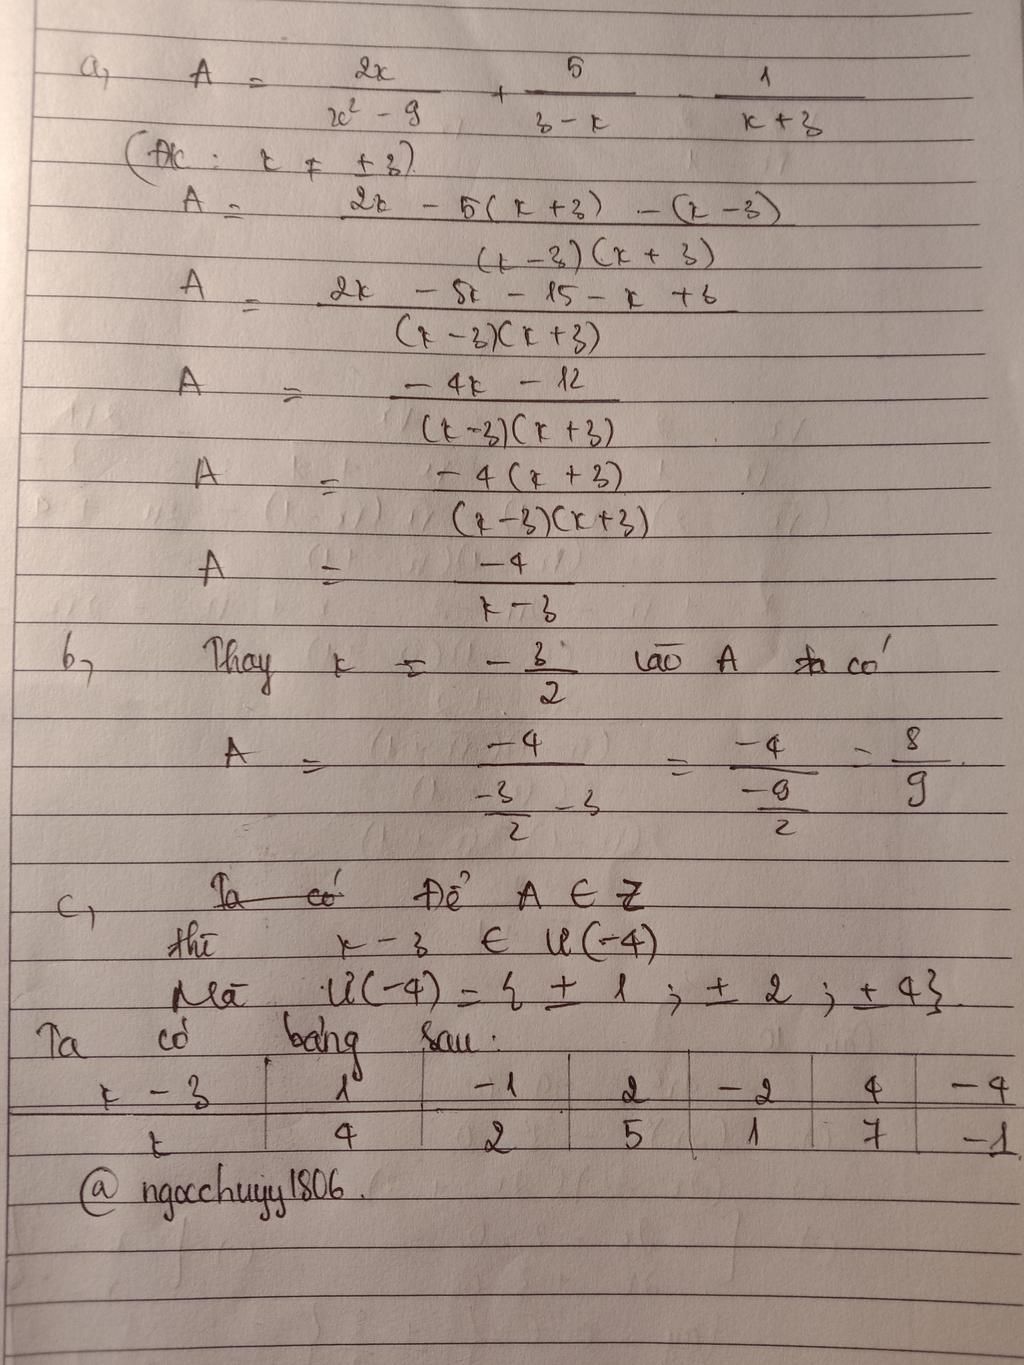 a, A = 2x / x² - 9 + 5 / 3 - x - 1 / x + 3
(ĐK : x ≠ ± 3).
A = 2x - 5(x + 3) - (x - 3) / (x - 3)(x + 3)
A = 2x - 5x - 15 - x + 3 / (x - 3)(x + 3)
A = - 4x - 12 / (x - 3)(x + 3)
A = - 4(x + 3) / (x - 3)(x + 3)
A = - 4 / x - 3
b, Thay x = - 3 / 2 vào A ta có
A = - 4 / (-3 / 2 - 3) = - 4 / (-9 / 2) = 8 / 9.
c, Ta có Để A ∈ Z
thì x - 3 ∈ Ư(-4)
Mà Ư(-4) = { ± 1 ; ± 2 ; ± 4}.
Ta có bảng sau :
x - 3 1 -1 2 -2 4 -4
x 4 2 5 1 7 -1
@ ngocchuyy1806.